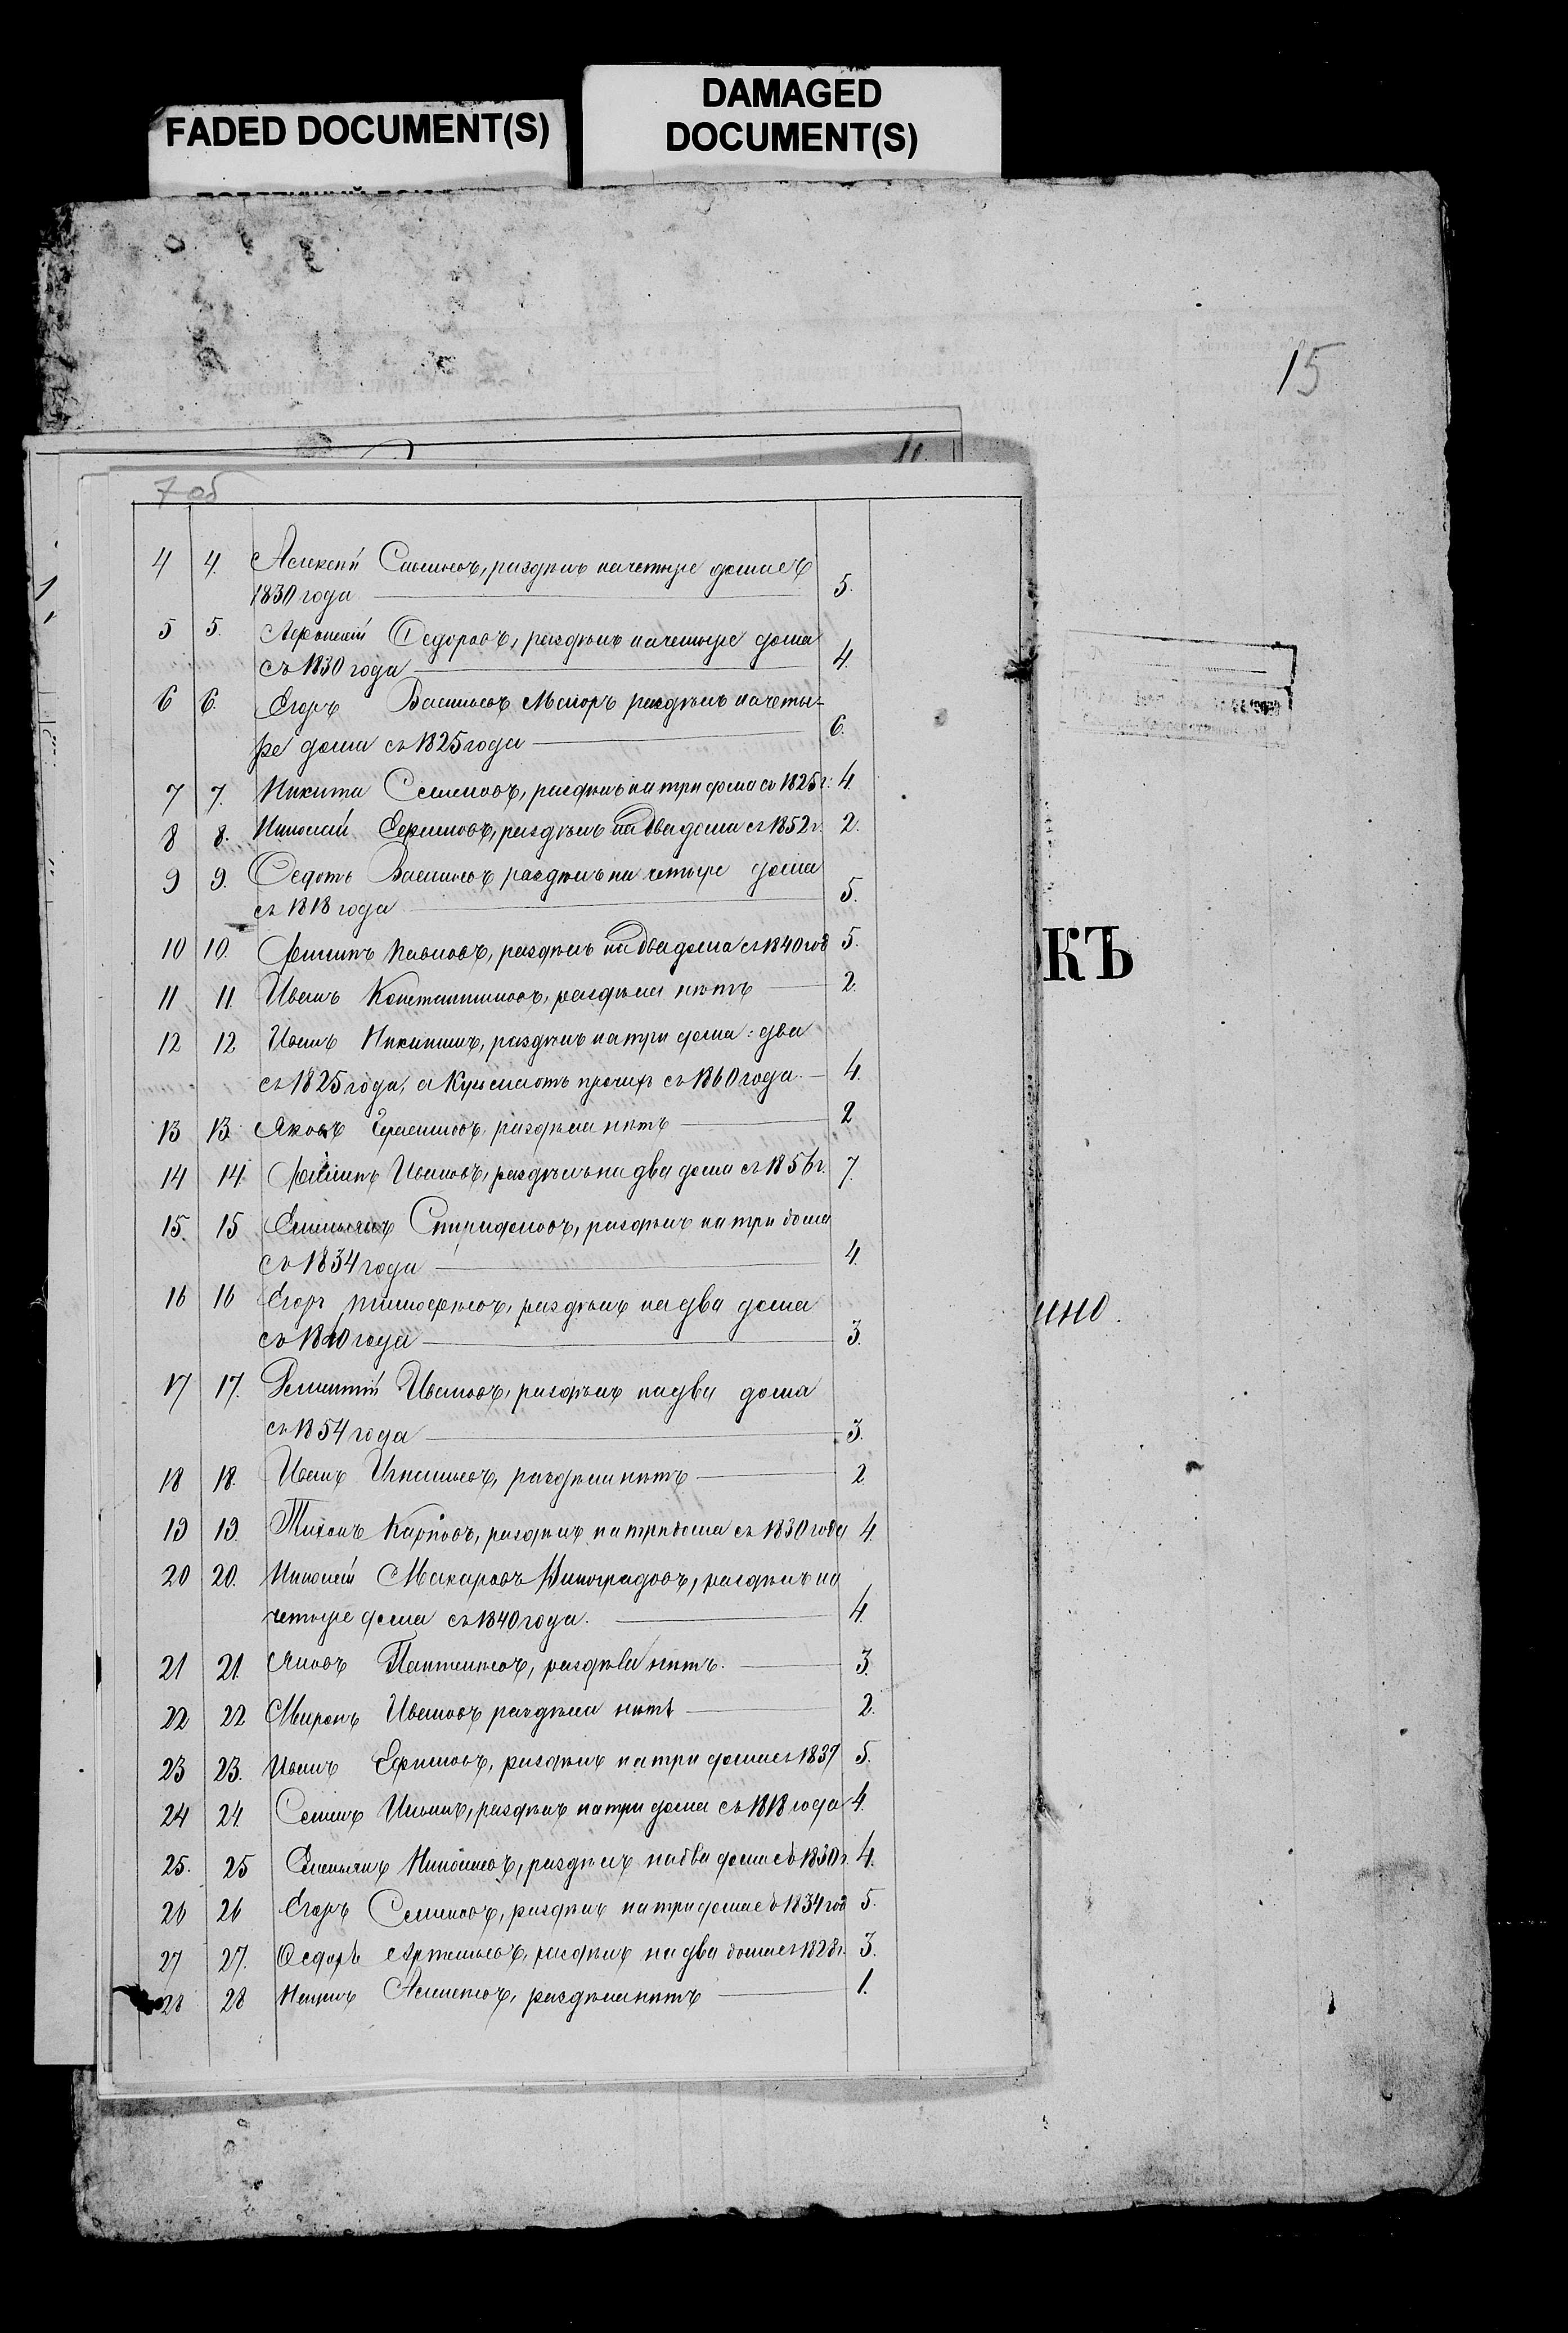 FADED DOCUMENT(S)
DAMAGED
DOCUMENT(S)
15
7 об
4 4. Алексей Савельевъ, раздѣлъ на четыре дома съ
1830 года 5.
5 5. Афонасий Федоровъ, раздѣлъ на четыре дома
съ 1830 года 4.
6 6. Егоръ Васильевъ раздѣлъ на четы-
ре дома съ 1825 года 6.
7 7. Никита Семеновъ, раздѣлъ на три дома съ 1825 г. 4.
8 8. Николай раздѣлъ на два дома съ 1852 г. 2.
9 9. Федотъ Васильевъ раздѣлъ на четыре дома
съ 1818 года 5.
10 10. Филипъ Павловъ, раздѣлъ на два дома съ 1840 год 5.
11 11. Иванъ Константиновъ, раздѣла нѣтъ 2.
12 12 Иванъ Никитинъ, раздѣлъ на три дома: два
съ 1825 года, а отъ прочихъ съ 1860 года. 4.
13 13. Яковъ Герасимовъ, раздѣла нѣтъ 2
14 14. Филипъ Ивановъ, раздѣлъ на два дома съ 1856 г. 7.
15. 15 Емельянъ Спиридоновъ, раздѣлъ на три дома
съ 1834 года 4.
16 16 Егоръ Тимофѣевъ, раздѣлъ на два дома
съ 1840 года 3.
17 17. Ивановъ, раздѣлъ на два дома
съ 1854 года 3.
18 18. Иванъ Игнатьевъ, раздѣла нѣтъ 2
19 19. Тихонъ Карповъ, раздѣлъ на три дома съ 1830 года 4.
20 20. Николай Макаровъ Виноградовъ, раздѣлъ на
четыре дома съ 1840 года. 4.
21 21. Яковъ Пантелѣевъ, раздѣла нѣтъ. 3.
22 22 Миронъ Ивановъ раздѣла нѣтъ 2.
23 23. Иванъ Ефимовъ, раздѣлъ на три дома съ 1837 5.
24 24. Семенъ Ильинъ, раздѣлъ на три дома съ 1818 года 4.
25. 25 Емельянъ Николаевъ, раздѣлъ на два дома съ 1830 г. 4.
26 26 Егоръ Семеновъ, раздѣлъ на три дома съ 1834 год 5.
27 27. Федоръ Артемьевъ, раздѣлъ на два дома съ 1828 г. 3.
28 28 Алексѣевъ, раздѣла нѣтъ 1.
КЪ
ино.